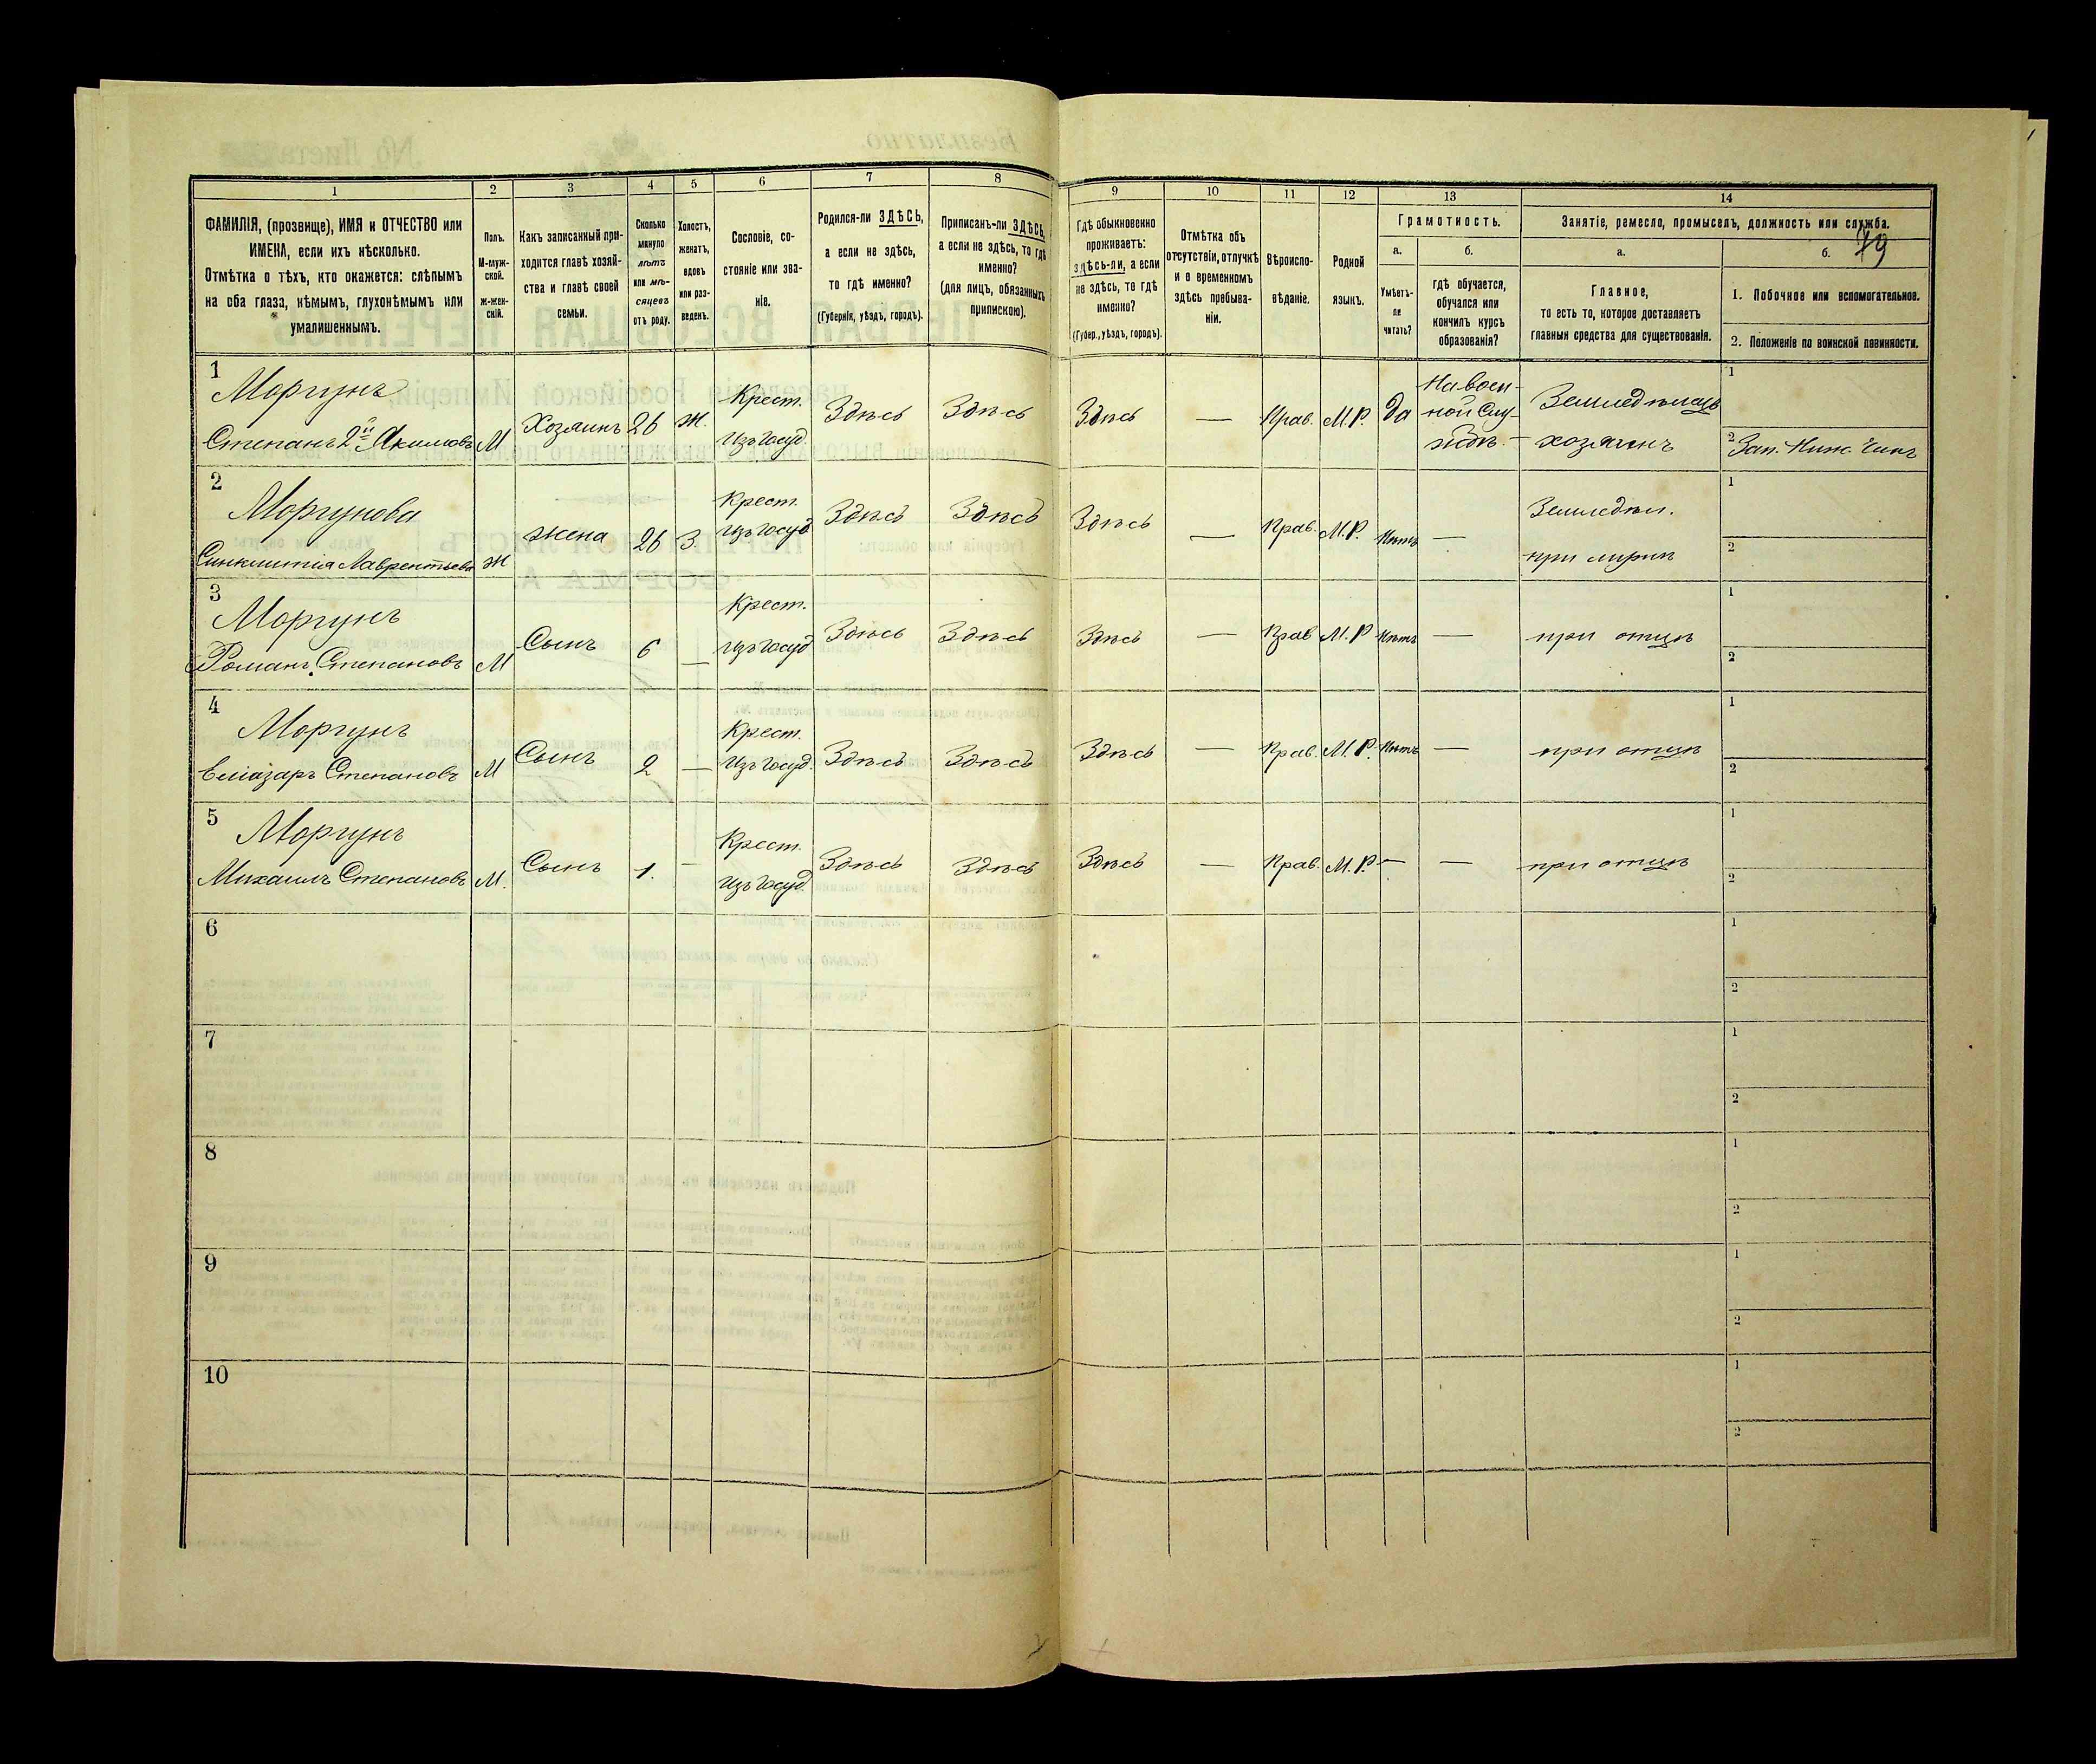 79
1 2 3 4 5 6 7 8 9 10 11 12 13 14
ФАМИЛІЯ, (прозвище), ИМЯ и ОТЧЕСТВО или
ИМЕНА, если ихъ нѣсколько.
Отмѣтка о тѣхъ, кто окажется: слѣпымъ
на оба глаза, нѣмымъ, глухонѣмымъ или
умалишеннымъ.
Полъ.
М-муж-
ской.
Ж-жен-
скій.
Какъ записанный при-
ходится главѣ хозяй-
ства и главѣ своей
семьи.
Сколько
минуло
лѣтъ
или мѣ-
сяцевъ
отъ роду.
Холостъ,
женатъ,
вдовъ
или раз-
веденъ.
Сословіе, со-
стояніе или зва-
ніе.
Родился-ли ЗДѢСЬ,
а если не здѣсь,
то гдѣ именно?
(Губернія, уѣздъ, городъ).
Приписанъ-ли ЗДѢСЬ,
а если не здѣсь, то гдѣ
именно?
(для лицъ, обязанныхъ
припискою).
Гдѣ обыкновенно
проживаетъ:
здѣсь-ли, а если
не здѣсь, то гдѣ
именно?
(Губер., уѣздъ, городъ).
Отмѣтка объ
отсутствіи, отлучкѣ
и о временномъ
здѣсь пребыва-
ніи.
Вѣроиспо-
вѣданіе.
Родной
языкъ.
Грамотность.
а.
Умѣетъ-
ли
читать?
б.
гдѣ обучается,
обучался или
кончилъ курсъ
образованія?
Занятіе, ремесло, промыселъ, должность или служба.
а.
Главное,
то есть то, которое доставляетъ
главныя средства для существованія.
б.
1. Побочное или вспомогательное.
2. Положеніе по воинской повинности.
1 Моргунъ
Степанъ 2й Акимовъ М Хозяинъ 26 Ж. Крест. Изъ Госуд. Здѣсь Здѣсь Здѣсь — Прав. М.Р. Да На воен-
ной Слу-
жбѣ. — Земледѣлецъ
хозяинъ 1
2 Зап. Ниж. Чинъ
2 Моргунова
Синклитія Лаврентьева Ж Жена 26 З. Крест. Изъ Госуд. Здѣсь Здѣсь Здѣсь — Прав. М.Р. Нѣтъ — Земледѣл.
при мужѣ 1
2
3 Моргунъ
Романъ Степановъ М Сынъ 6 — Крест. Изъ Госуд. Здѣсь Здѣсь Здѣсь — Прав. М.Р. Нѣтъ — при отцѣ 1
2
4 Моргунъ
Еліазаръ Степановъ М Сынъ 2 — Крест. Изъ Госуд. Здѣсь Здѣсь Здѣсь — Прав. М.Р. Нѣтъ — при отцѣ 1
2
5 Моргунъ
Михаилъ Степановъ М. Сынъ 1. — Крест. Изъ Госуд. Здѣсь Здѣсь Здѣсь — Прав. М.Р. — — при отцѣ 1
2
6 1
2
7 1
2
8 1
2
9 1
2
10 1
2